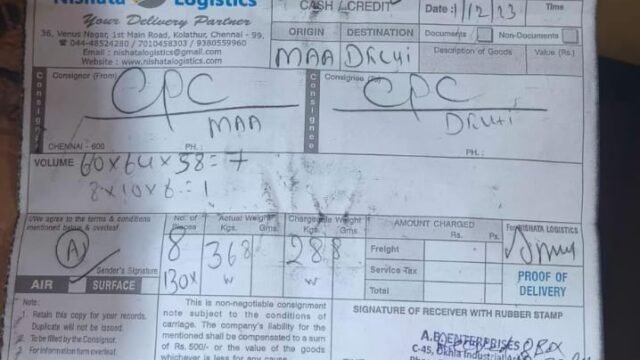 Nishata Logistics
Your Delivery Partner
36, Venus Nagar, 1st Main Road, Kolathur, Chennai - 99.
☎ 044-48524280 / 7010458303 / 9380559960
Email : nishatalogistics@gmail.com
Website : www.nishatalogistics.com
CASH / CREDIT
Date : 1/12/23
Time
ORIGIN DESTINATION
MAA DRLHI
Documents Non-Documents
Description of Goods Value (Rs.)
Consignor
Consignor (From)
CPC
MAA
CHENNAI - 600 PH. :
Consignee
CPC
DRLHI
PH. :
VOLUME 60x64x58=7
8x10x6=1
I/We agree to the terms & conditions
mentioned below & overleaf
A
Sender's Signature
AIR SURFACE
No. of Pieces
8
130x
Actual Weight
Kgs. Gms.
368
Chargeable Weight
Kgs. Gms.
288
AMOUNT CHARGED
Rs. Ps.
Freight
Service Tax
Total
For NISHATA LOGISTICS
PROOF OF
DELIVERY
Note:
1. Retain this copy for your records.
Duplicate will not be issued.
2. To be filled by the Consignor.
3. For information turn overleaf.
This is non-negotiable consignment
note subject to the conditions of
carriage. The company's liability for the
mentioned shall be compensated to a sum
of Rs. 500/- or the value of the goods
whichever is less for any cause
SIGNATURE OF RECEIVER WITH RUBBER STAMP
ENTERPRISES
C-45, Okhla Industrial